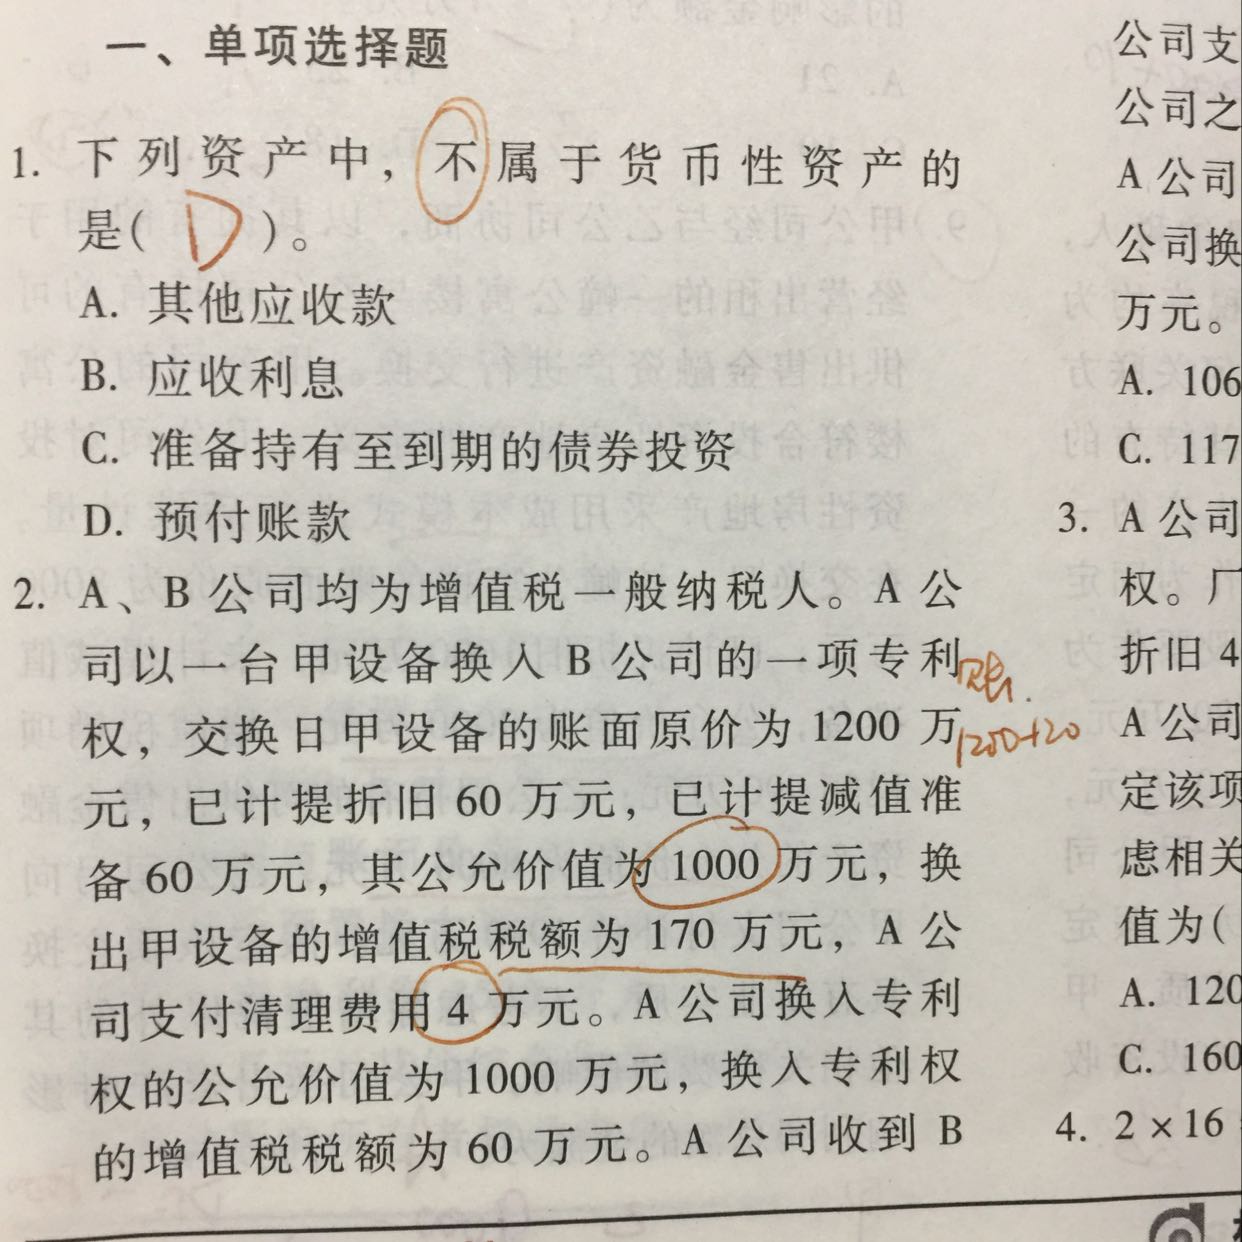 一、单项选择题
1. 下列资产中，不属于货币性资产的
是( D )。
A. 其他应收款
B. 应收利息
C. 准备持有至到期的债券投资
D. 预付账款
2. A、B公司均为增值税一般纳税人。A公
司以一台甲设备换入B公司的一项专利
权，交换日甲设备的账面原价为1200万
元，已计提折旧60万元，已计提减值准
备60万元，其公允价值为1000万元，换
出甲设备的增值税税额为170万元，A公
司支付清理费用4万元。A公司换入专利
权的公允价值为1000万元，换入专利权
的增值税税额为60万元。A公司收到B
公司支
公司之
A公司
公司换
万元。
A. 106
C. 117
3. A公司
权。厂
折旧4
A公司
定该项
虑相关
值为(
A. 120
C. 160
4. 2×16